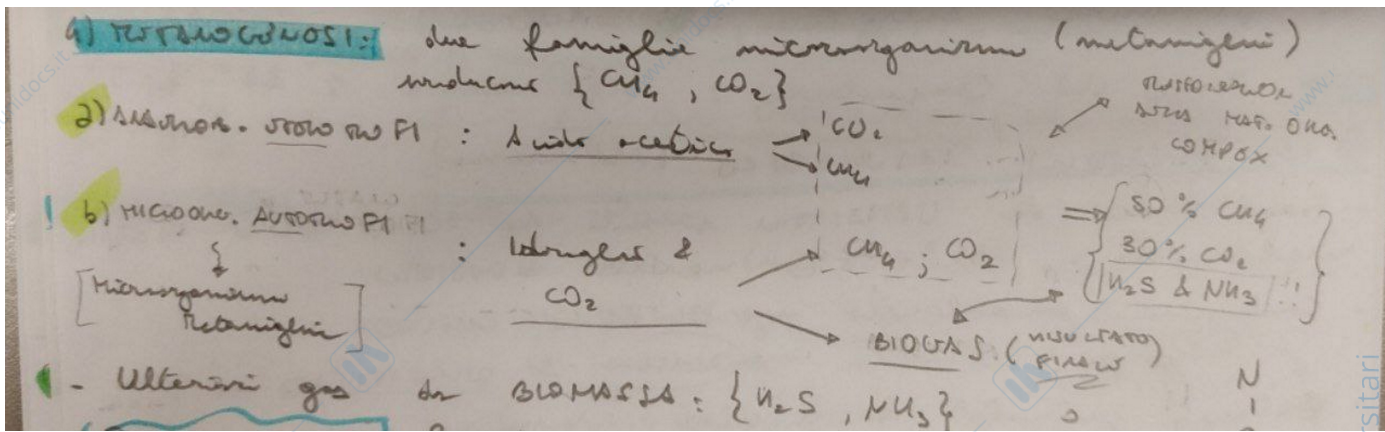 4) METANOGENOSI: due famiglie microrganismi (metanigeni)
producono { CH4 , CO2 }
a) ETEROTROFI : Acido acetico → CO2
→ CH4
MAT. ORG.
b) MICRORG. AUTOTROFI : Idrogeno & CH4 ; CO2
CO2
[ Microrganismi
Metanigeni ]
⇒ { 50 % CH4
30 % CO2
H2S & NH3 !! }
→ BIOGAS (RISULTATO
FINALE)
- Ulteriori gas da BIOMASSA : { H2S , NH3 }
N